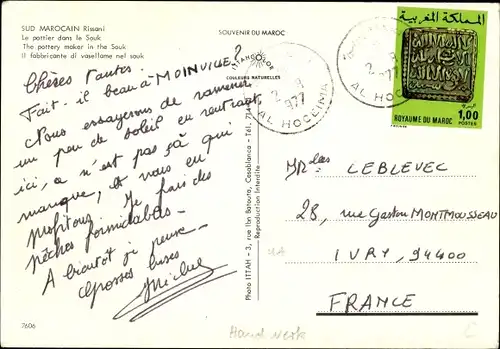 SUD MAROCAIN Rissani
Le potier dans le Souk
The pottery maker in the Souk
Il fabbricante di vasellame nel souk
SOUVENIR DU MAROC
COULEURS NATURELLES
Chères tantes.
Fait-il beau à MOINVILLE?
Nous essayerons de ramener
un peu de soleil en rentrant,
ici, ce n'est pas ça qui
manque, et nous en
profitons. Je fais des
pêches formidables.
A bientôt je pense.
Grosses bises
Michel
7606
Photo ITTAH - 3, rue Ibn Batouta, Casablanca - Tél.
Reproduction Interdite
2 -9
1977
AL HOCEIMA
2 -9
1977
AL HOCEIMA
المملكة المغربية
1,00
ROYAUME DU MAROC
POSTES
LEBLEVEC
28, rue Gaston MONTMOUSSEAU
IVRY, 94400
FRANCE
Handwerk